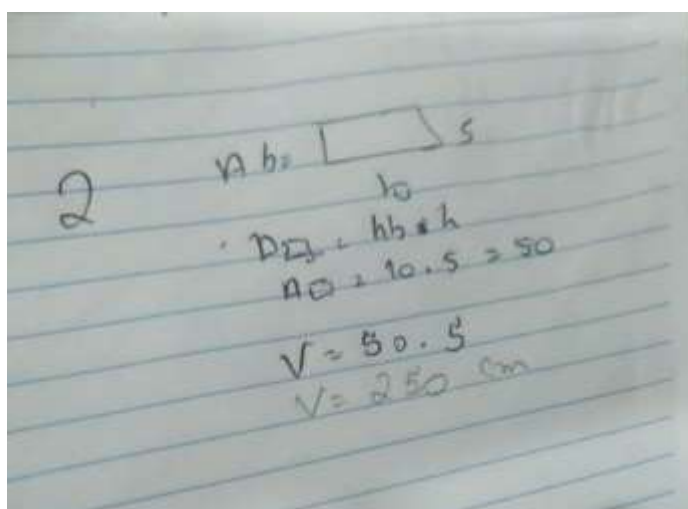 2
Ab= 5
10
A▭ = Ab • h
A▭ = 10 . 5 = 50
V = 50 . 5
V = 250 cm